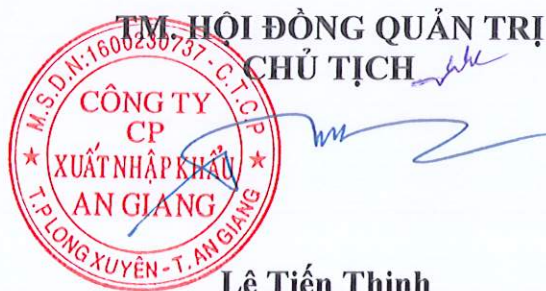 TM. HỘI ĐỒNG QUẢN TRỊ
CHỦ TỊCH
M.S.D.N:1600230737-C.T.C.P
CÔNG TY
CP
XUẤT NHẬP KHẨU
AN GIANG
T.P LONG XUYÊN - T. AN GIANG
Lê Tiến Thịnh